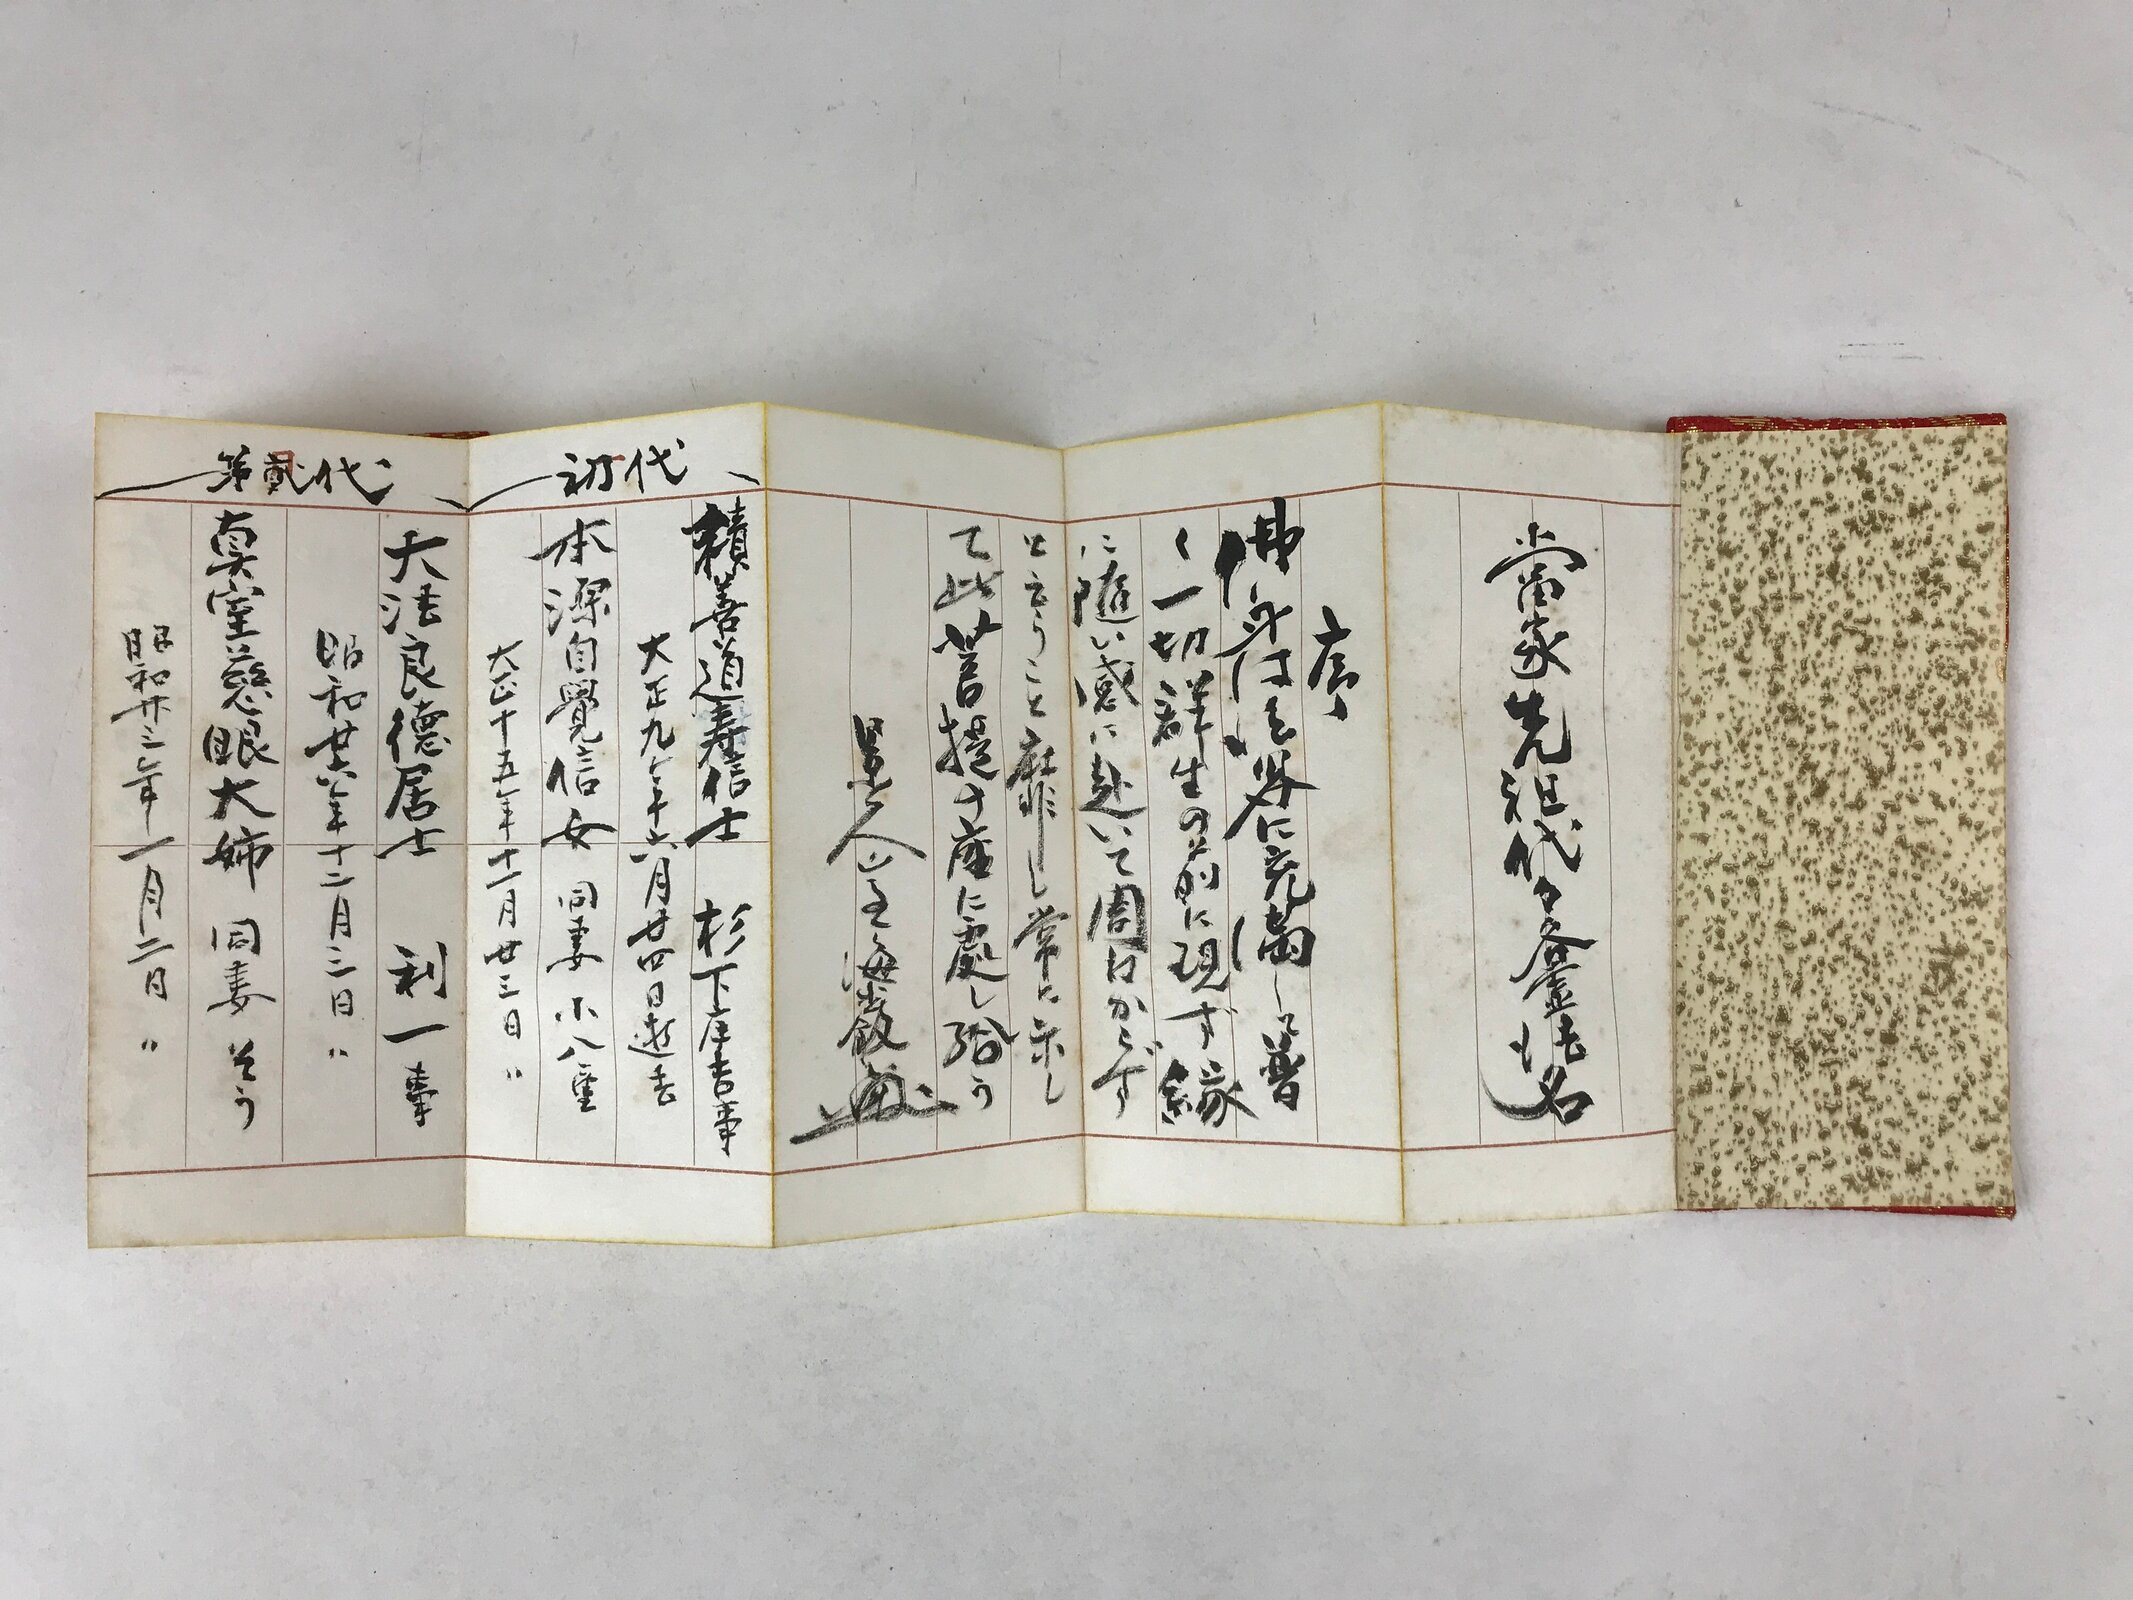 當家先祖代々各霊法名
序
佛身は法界に充満し普
く一切群生の前に現ず縁
に随い感に赴いて周ねからず
と云うこと靡し常に示し
て此菩提の座に處し給う
初代
積善道寿信士 杉下庄吉事
大正九年六月廿四日逝去
本深自覺信女 同妻 小八重
大正十五年十一月廿三日 〃
第貳代
大法良徳居士 利一事
昭和廿六年十二月三日 〃
真室慈眼大姉 同妻 そう
昭和廿三年一月二日 〃